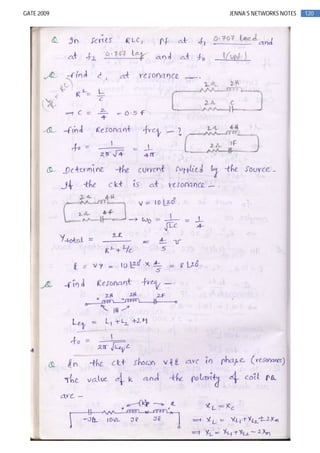 GATE 2009 JENNA'S NETWORKS NOTES 120
Q. In series RLC, Pf at f₁ 0.707 lead and
at f₂ 0.707 lag and at f₀ 1 (UPF)
Q. find C, at resonance —.
2Ω 2H
R² = L/C
2Ω C
→ C = 2/4 = 0.5 F
Q. find Resonant freq — ?
2Ω 4H
f₀ = 1/(2π√4) = 1/4π
2Ω 1F
Q. Determine the current supplied by the source.
If the ckt is at resonance —.
2Ω 4H
V = 10∠30°
2Ω 4F
→ ω₀ = 1/√LC = 1/4
Ytotal = 2R/(R² + L/C) = 4/5 ℧
I = VY = 10∠20° × 4/5 = 8∠20°
Q. find Resonant freq —
2H 2H 2F
1H
Leq = L₁ + L₂ + 2M
f₀ = 1/(2π√LeqC)
Q. In the ckt shown V & I are in phase (resonance)
The value of k and the polarity of coil PQ
are —
XL = XC
-j12 10Ω j8 j8
⇒ XL = XL₁ + XL₂ ± 2Xm
⇒ XL = XL₁ + XL₂ - 2Xm